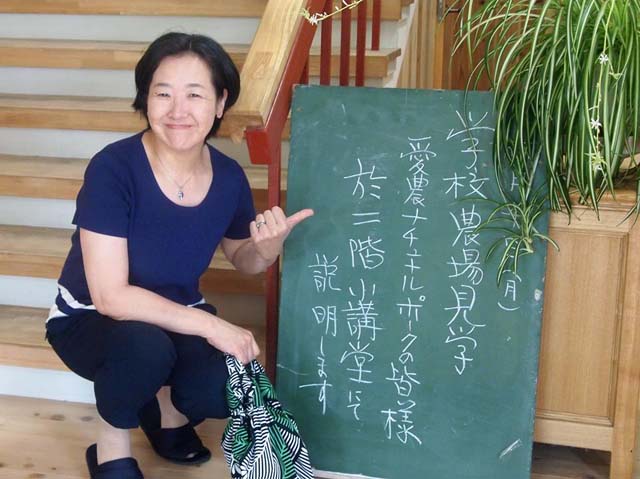 月 (月)
学校農場見学
愛農ナチュルポークの皆様
於二階小講堂にて
説明します